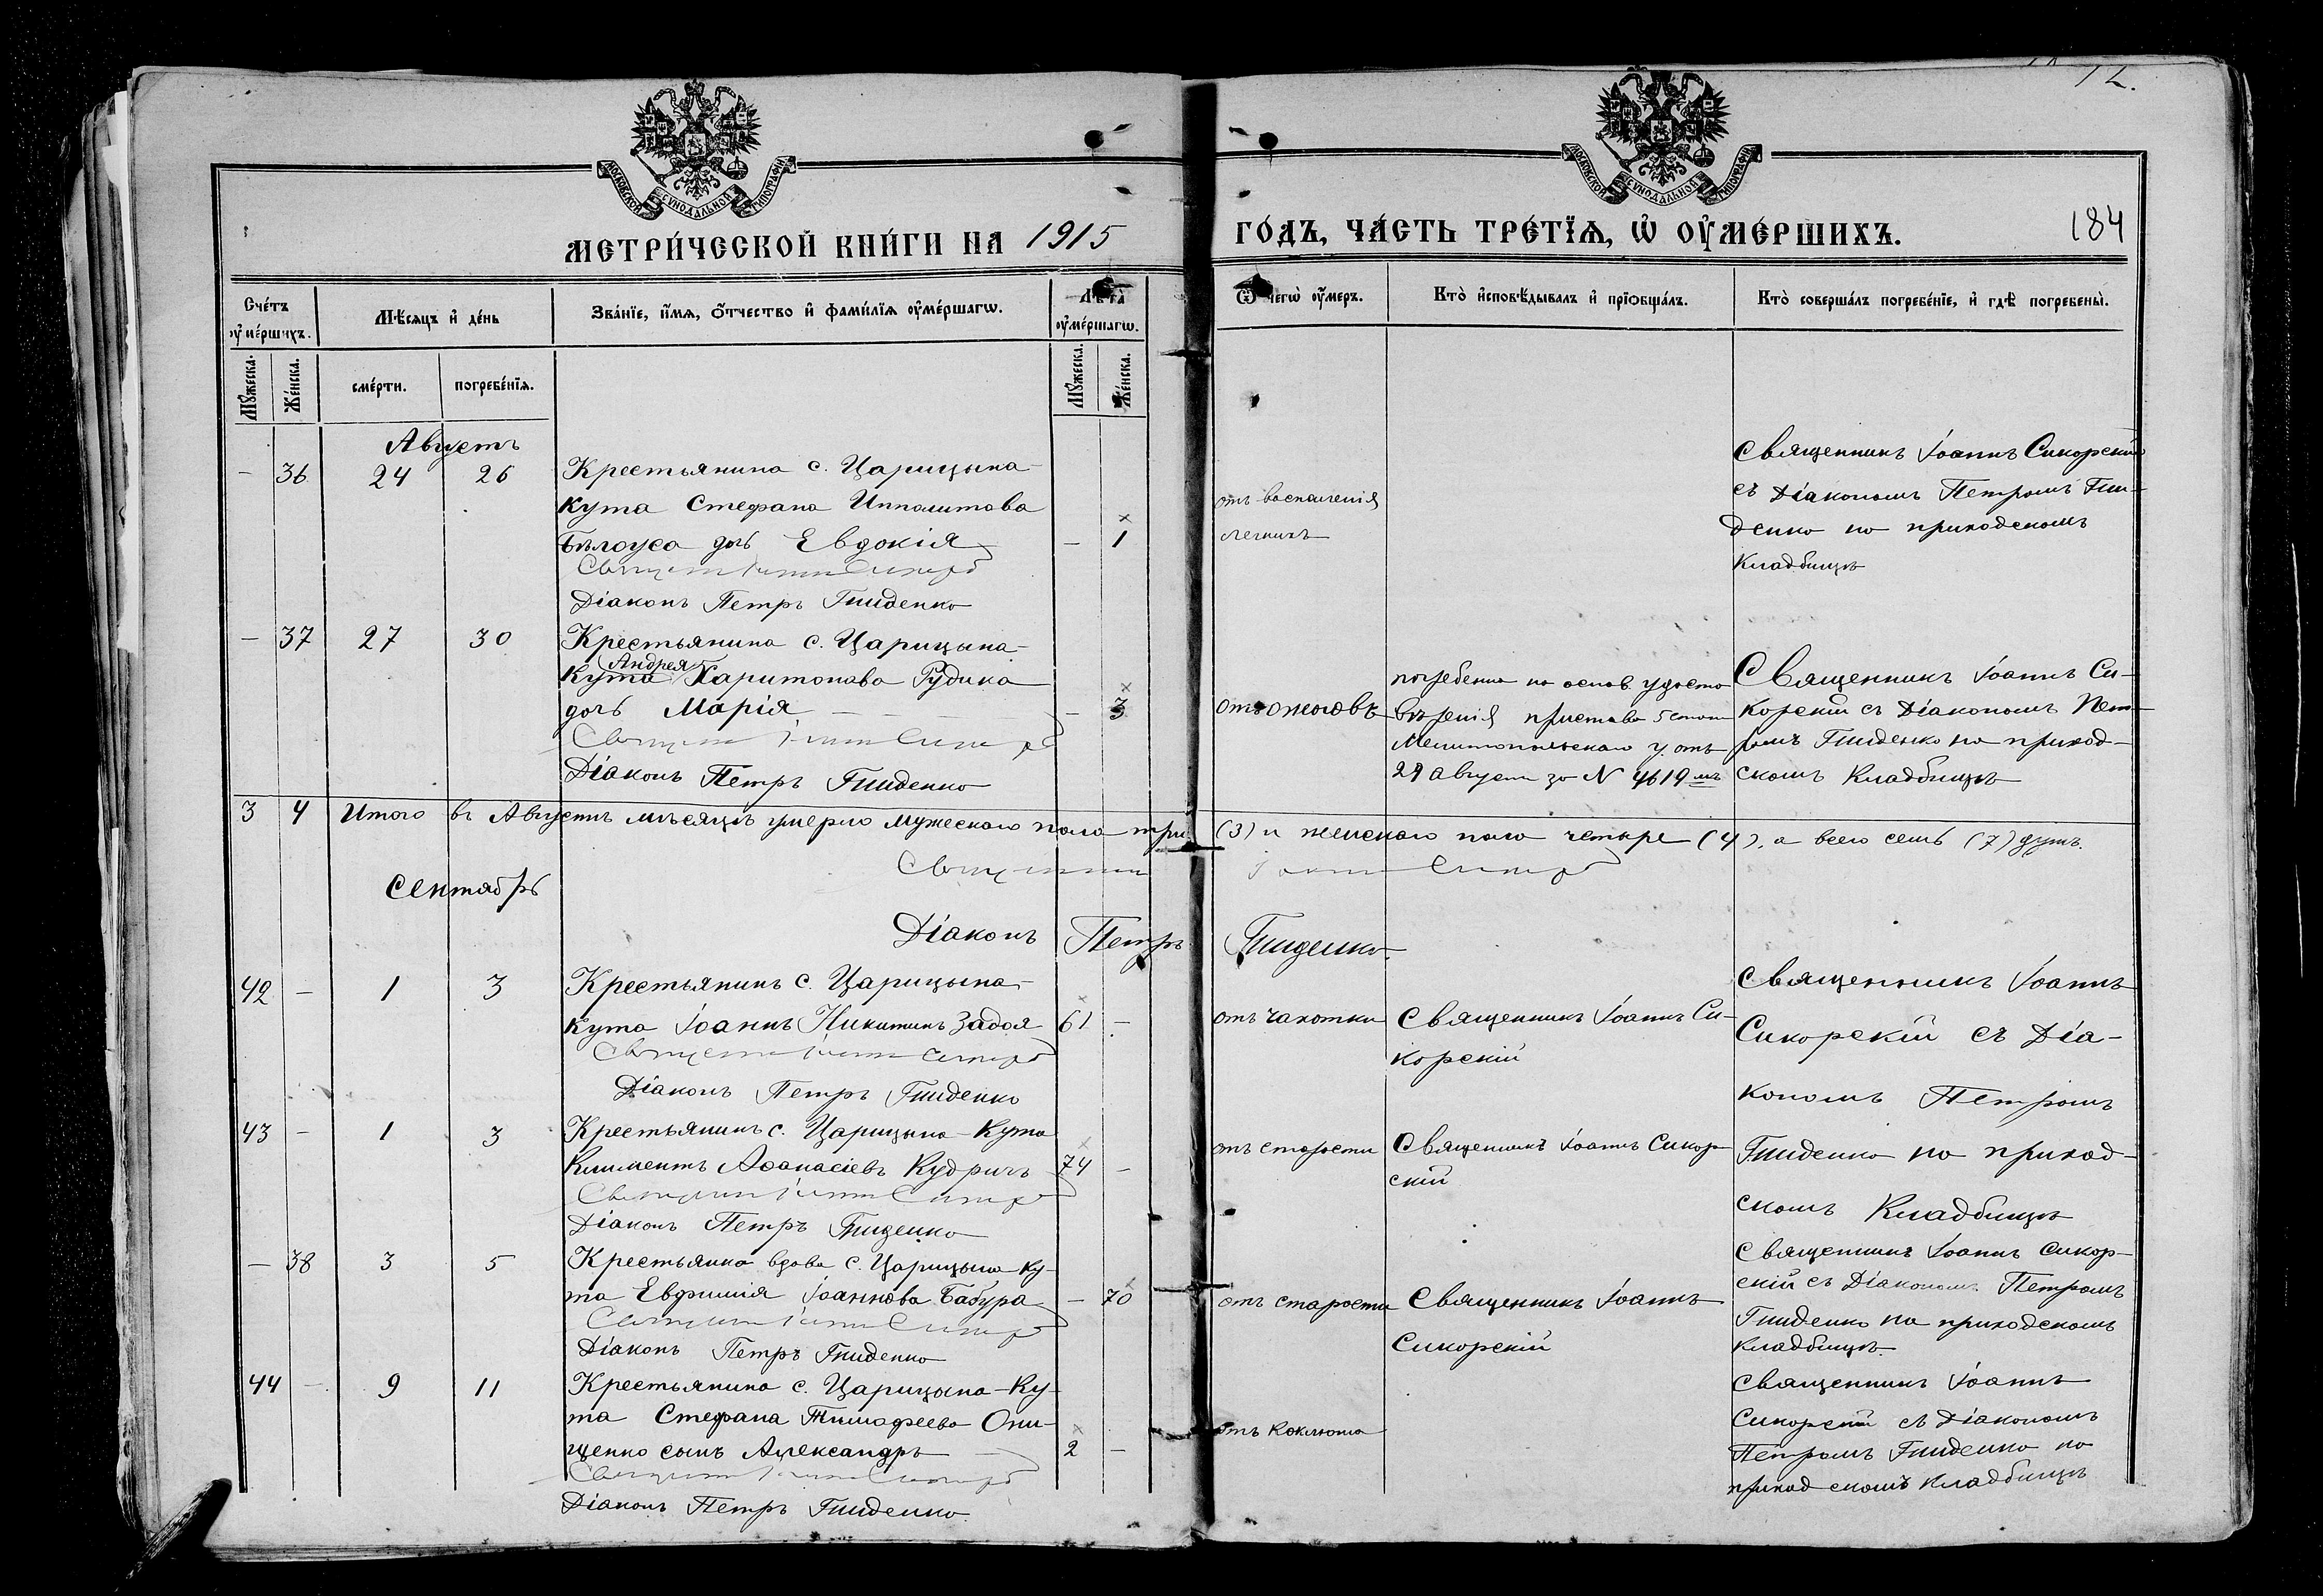 12.
МОСКОВСКОЙ СУНОДАЛЬНОЙ ТИПОГРАФІИ
МОСКОВСКОЙ СУНОДАЛЬНОЙ ТИПОГРАФІИ
МЕТРИ́ЧЕСКОЙ КНИ́ГИ НА 1915
ГО́ДЪ, ЧА́СТЬ ТРЕ́ТЇѦ, Ѡ҆ ОУ҆МЕ́РШИХЪ.
184
Сче́тъ оу҆ме́ршихъ.
Мѣ́сяцъ и҆ де́нь
Зва́нїе, и҆́мѧ, ѻ҆́тчество и҆ фами́лїѧ оу҆ме́ршагѡ.
Лѣ́та оу҆ме́ршагѡ.
Ѿ чегѡ̀ оу҆́меръ.
Кто̀ и҆сповѣ́дывалъ и҆ прїѡбща́лъ.
Кто̀ соверша́лъ погребе́нїе, и҆ гдѣ̀ погребены̀.
Мꙋ́жеска.
Же́нска.
сме́рти.
погребе́нїѧ.
Мꙋ́жеска.
Же́нска.
Августъ
— 36 24 26 Крестьянина с. Царицына-
Кута Стефана Ипполитова
Бѣлоуса дочь Евдокія — 1
Діаконъ Петръ Гниденко
отъ воспаленія
легкихъ
Священникъ Іоаннъ Сикорскій
съ Діакономъ Петромъ Гни-
денко на приходскомъ
Кладбищѣ
— 37 27 30 Крестьянина с. Царицына-
Андрея
Кута Харитонова Рудика
дочь Марія — 3
Діаконъ Петръ Гниденко
отъ ожоговъ
погребена на основ. удосто
вѣренія пристава 5 стан
Мелитопольскаго у. отъ
29 Августа за N 4619 мъ
Священникъ Іоаннъ Си-
корскій съ Діакономъ Пет-
ромъ Гниденко на приход-
скомъ Кладбищѣ
3 4 Итого въ Августѣ мѣсяцѣ умерло мужескаго пола три (3) и женскаго пола четыре (4), а всего семь (7) душъ.
Сентябрь
Діаконъ Петръ Гниденко.
42 — 1 3 Крестьянинъ с. Царицына-
Кута Іоаннъ Никитинъ Задоя 61 —
Діаконъ Петръ Гниденко
отъ чахотки
Священникъ Іоаннъ Си-
корскій
Священникъ Іоаннъ
Сикорскій съ Діа-
кономъ Петромъ
Гниденко на приход-
скомъ Кладбищѣ
43 — 1 3 Крестьянинъ с. Царицына-Кута
Климентъ Аѳанасіевъ Кудричъ 74 —
Діаконъ Петръ Гниденко
отъ старости
Священникъ Іоаннъ Сикор-
скій
— 38 3 5 Крестьянка вдова с. Царицына Ку-
та Евфимія Іоаннова Бабура — 70
Діаконъ Петръ Гниденко
отъ старости
Священникъ Іоаннъ
Сикорскій
Священникъ Іоаннъ Сикор-
скій съ Діакономъ Петромъ
Гниденко на приходскомъ
Кладбищѣ.
44 — 9 11 Крестьянина с. Царицына-Ку-
та Стефана Тимофеева Они-
щенко сынъ Александръ 2 —
Діаконъ Петръ Гниденко
отъ Коклюша
Священникъ Іоаннъ
Сикорскій съ Діакономъ
Петромъ Гниденко на
приходскомъ Кладбищѣ